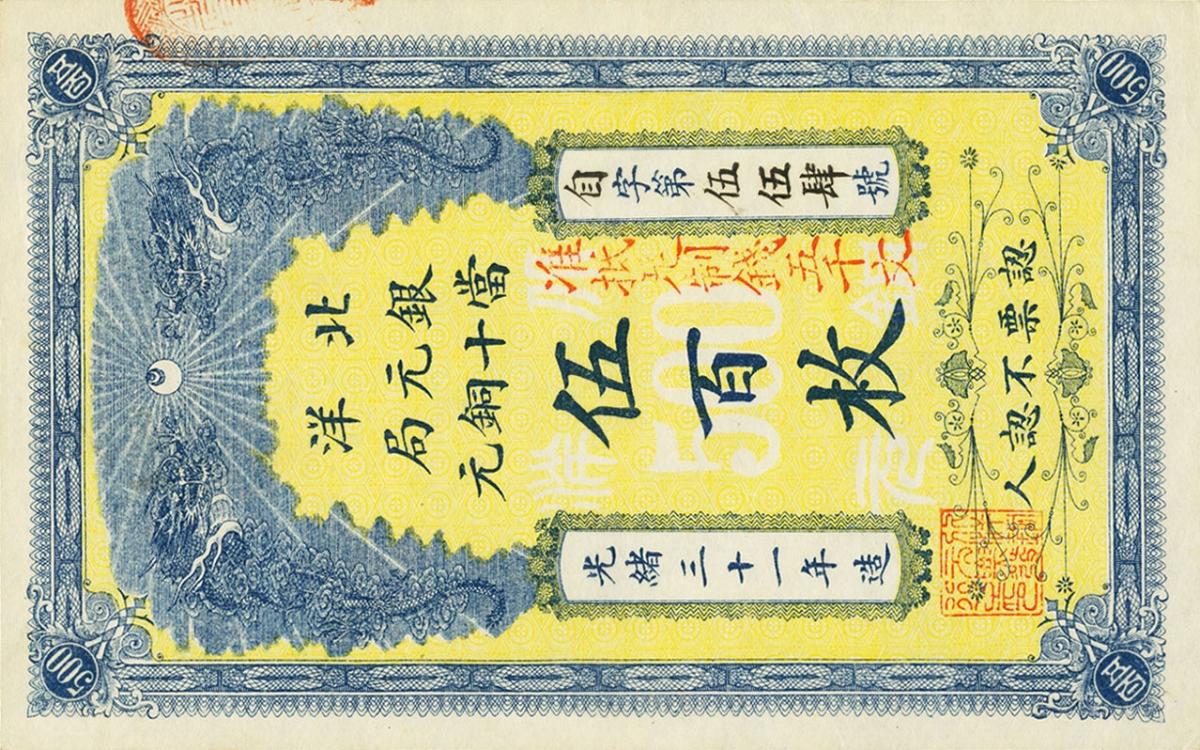 500
自字第伍伍肆號
准抵制錢五千文
北洋
銀元局
當十銅元
伍百枚
500
光緒三十一年造
認票不認人
500